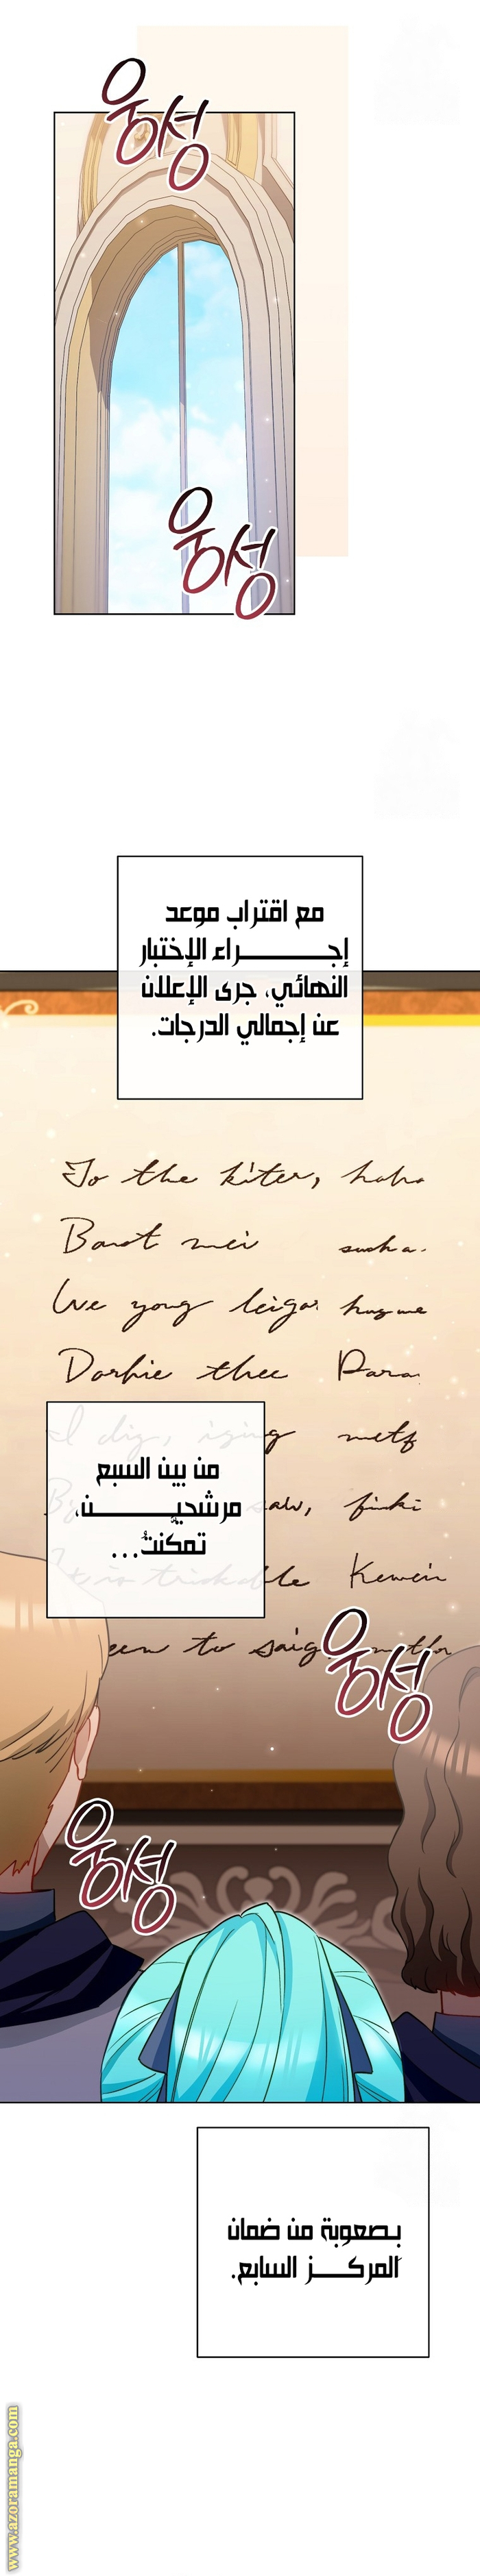 웅성
웅성
مع اقتراب موعد
إجـــراء الإختبار
النهائي، جرى الإعلان
عن إجمالي الدرجات.
To the kiter, haha
Barot mei such a.
We yong leigar hug me
Dorhie thee Para
I dig, ising metf
saw, finki
Kewein
من بين السبع
مرشحيـــن،
تمكنتُ...
to saig
웅성
웅성
بصعوبة من ضمان
المركـــز السابع.
www.azoramanga.com